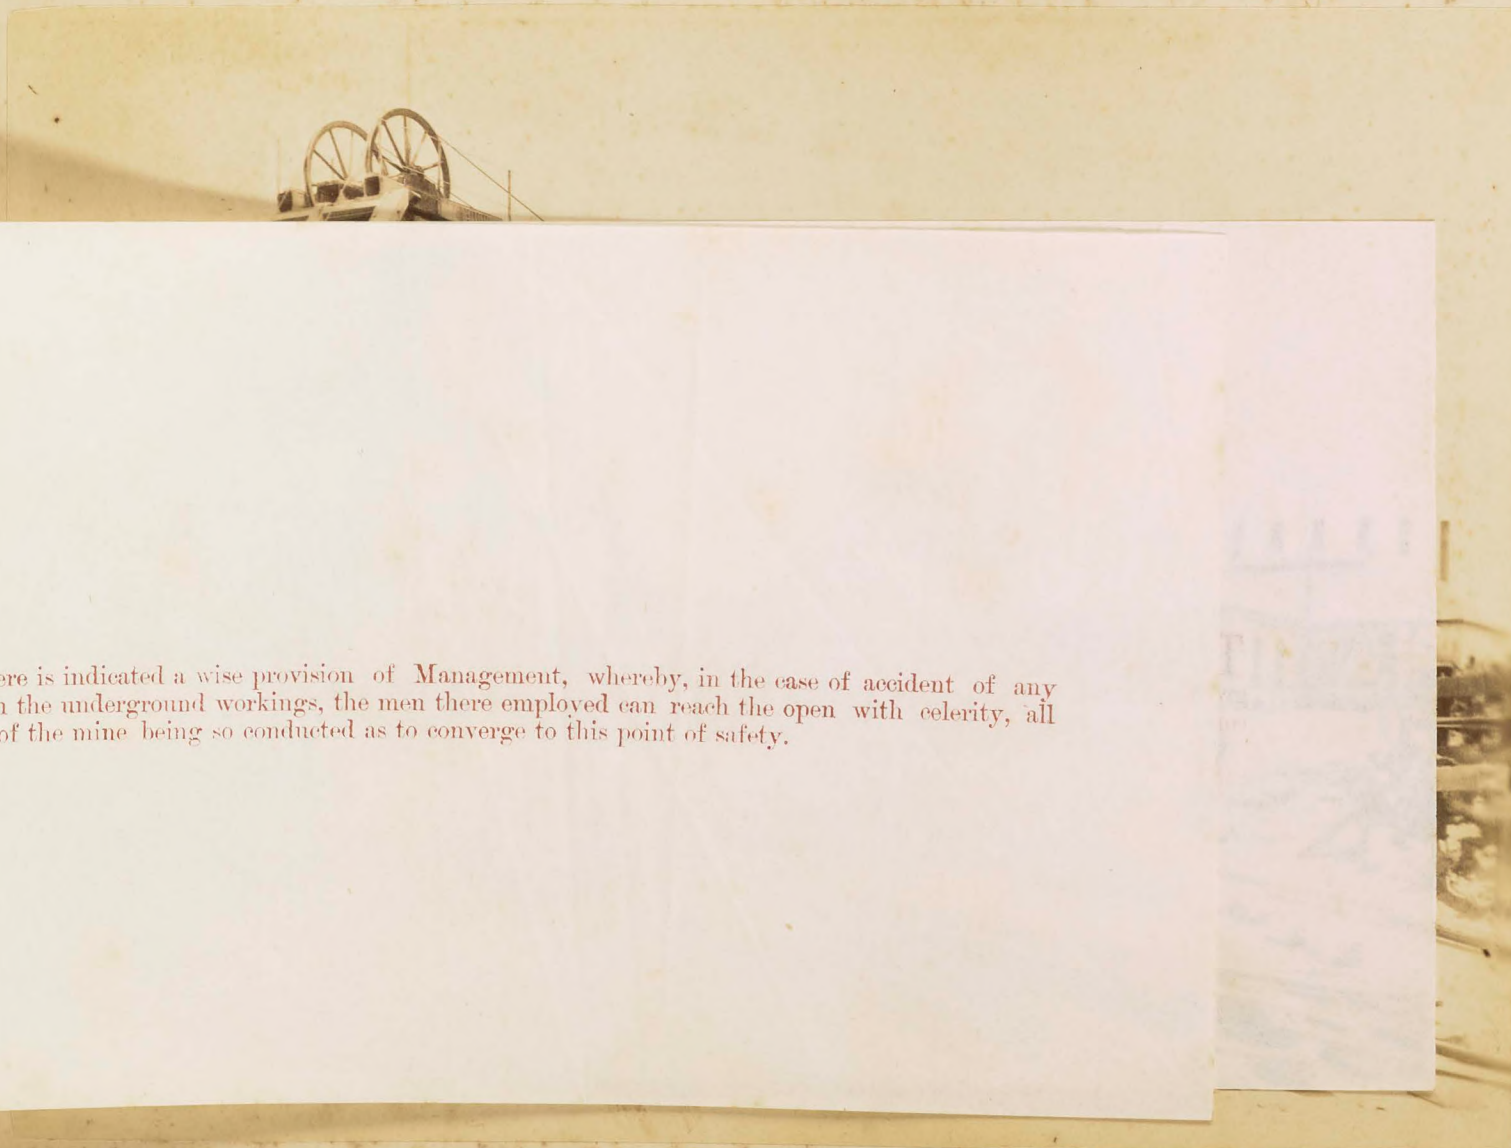 ere is indicated a wise provision of Management, whereby, in the case of accident of any
the underground workings, the men there employed can reach the open with celerity, all
of the mine being so conducted as to converge to this point of safety.